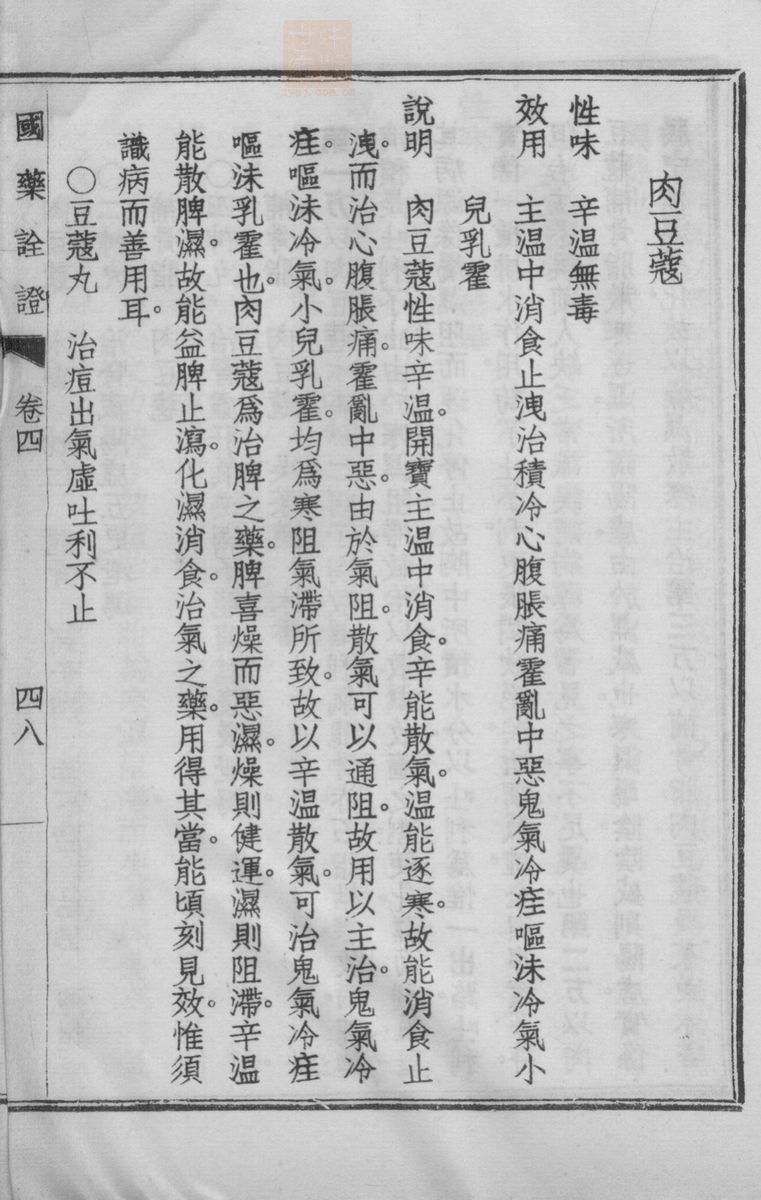 肉豆蔻
性味　辛温無毒
效用　主温中消食止洩治積冷心腹脹痛霍亂中惡鬼氣冷疰嘔沫冷氣小
兒乳霍
說明　肉豆蔻性味辛温。開寶主温中消食。辛能散氣。温能逐寒。故能消食止
洩。而治心腹脹痛。霍亂中惡。由於氣阻。散氣可以通阻。故用以主治。鬼氣冷
疰。嘔沫冷氣。小兒乳霍。均爲寒阻氣滯所致。故以辛温散氣。可治鬼氣冷疰
嘔沫乳霍也。肉豆蔻爲治脾之藥。脾喜燥而惡濕。燥則健運。濕則阻滯。辛温
能散脾濕。故能益脾止瀉。化濕消食。治氣之藥。用得其當。能頃刻見效。惟須
識病而善用耳。
〇豆蔻丸　治痘出氣虛吐利不止
國藥詮證　卷四　四八